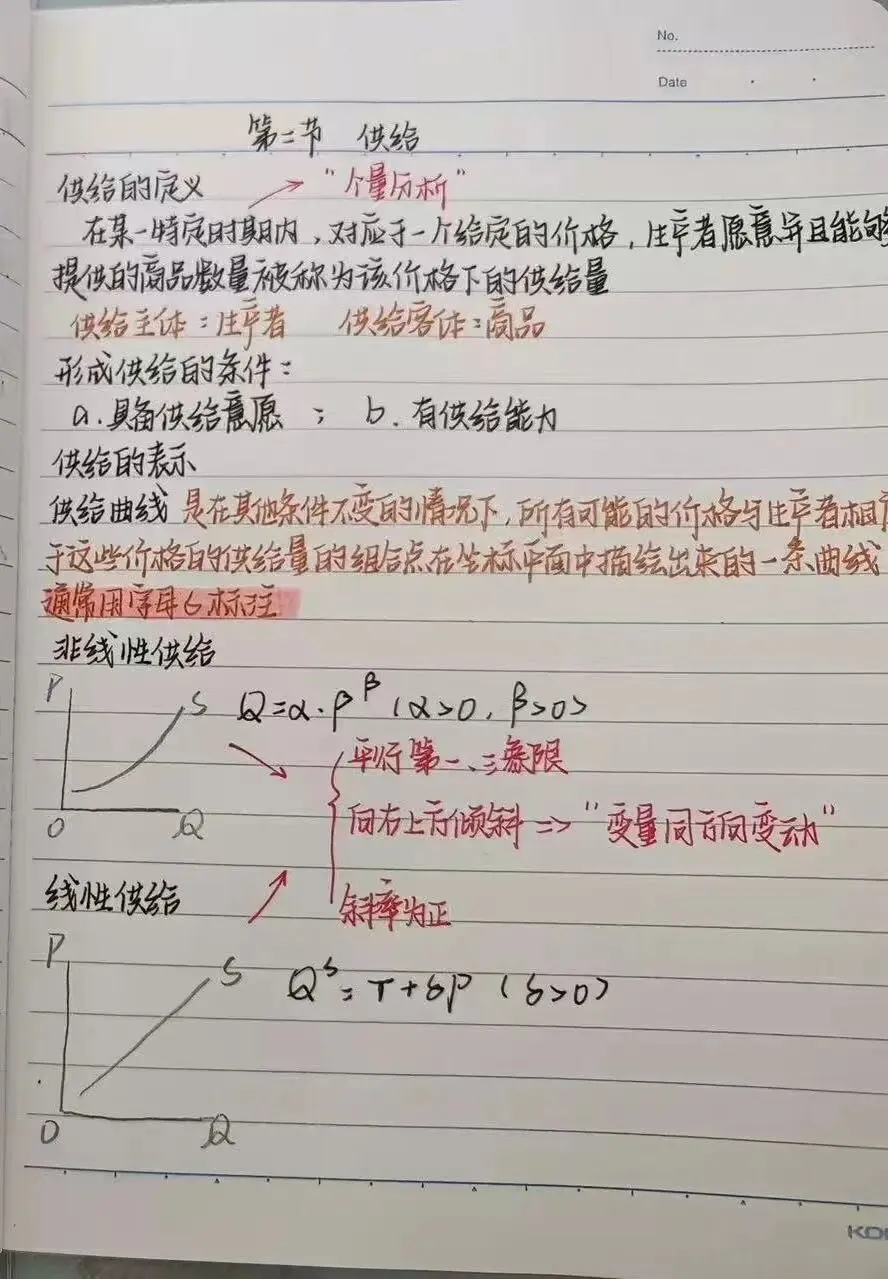 No.
Date
第二节 供给
供给的定义 "个量分析"
在某一特定时期内，对应于一个给定的价格，生产者愿意并且能够
提供的商品数量被称为该价格下的供给量
供给主体：生产者 供给客体：商品
形成供给的条件：
a.具备供给意愿； b.有供给能力
供给的表示
供给曲线 是在其他条件不变的情况下，所有可能的价格与生产者相
于这些价格的供给量的组合点在坐标平面中描绘出来的一条曲线
通常用字母S标注
非线性供给
P S Q=α·P^β (α>0，β>0)
平行第一、三象限
向右上方倾斜 => "变量同方向变动"
O Q
线性供给
斜率为正
P S Q^s=T+δP (δ>0)
O Q